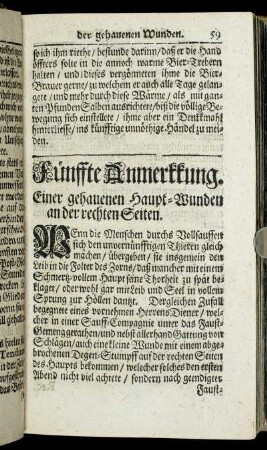 der gehauenen Wunden. 59
so ich ihm riethe / bestunde darinn / daß er die Hand
öffters solte in die annoch warme Bier-Trebern
halten / und / dieses vergönneten ihme die Bier-
Brauer gerne / zu welchem er auch alle Tage gelan-
gete / und mehr durch diese Wärme / als mit gan-
ten Pfunden Salben ausrichtete / biß die völlige Be-
wegung sich einstellete / ihme aber ein Denckmahl
hinterliesse / ins künfftige unnöthige Händel zu mei-
den.
Fünffte Anmerkkung.
Einer gehauenen Haupt-Wunden
an der rechten Seiten.
WEnn die Menschen durchs Vollsauffen
sich den unvernünfftigen Thieren gleich
machen / übergeben / sie insgemein den
Leib in die Folter des Zorns / daß mancher mit einem
Schmertz-vollem Haupt seine Thorheit zu spät be-
klaget / oder wohl gar mit Leib und Seel in vollem
Sprung zur Höllen dantzt. Dergleichen Zufall
begegnete eines vornehmen Herrens Diener / wel-
cher in einer Sauff-Compagnie unter das Faust-
Gemeng gerathen / und nebst allerhand Gattung von
Schlägen / auch eine kleine Wunde mit einem abge-
brochenen Degen-Stumpff auf der rechten Seiten
des Haupts bekommen / welcher solches den ersten
Abend nicht viel achtete / sondern nach geendigter
Faust-